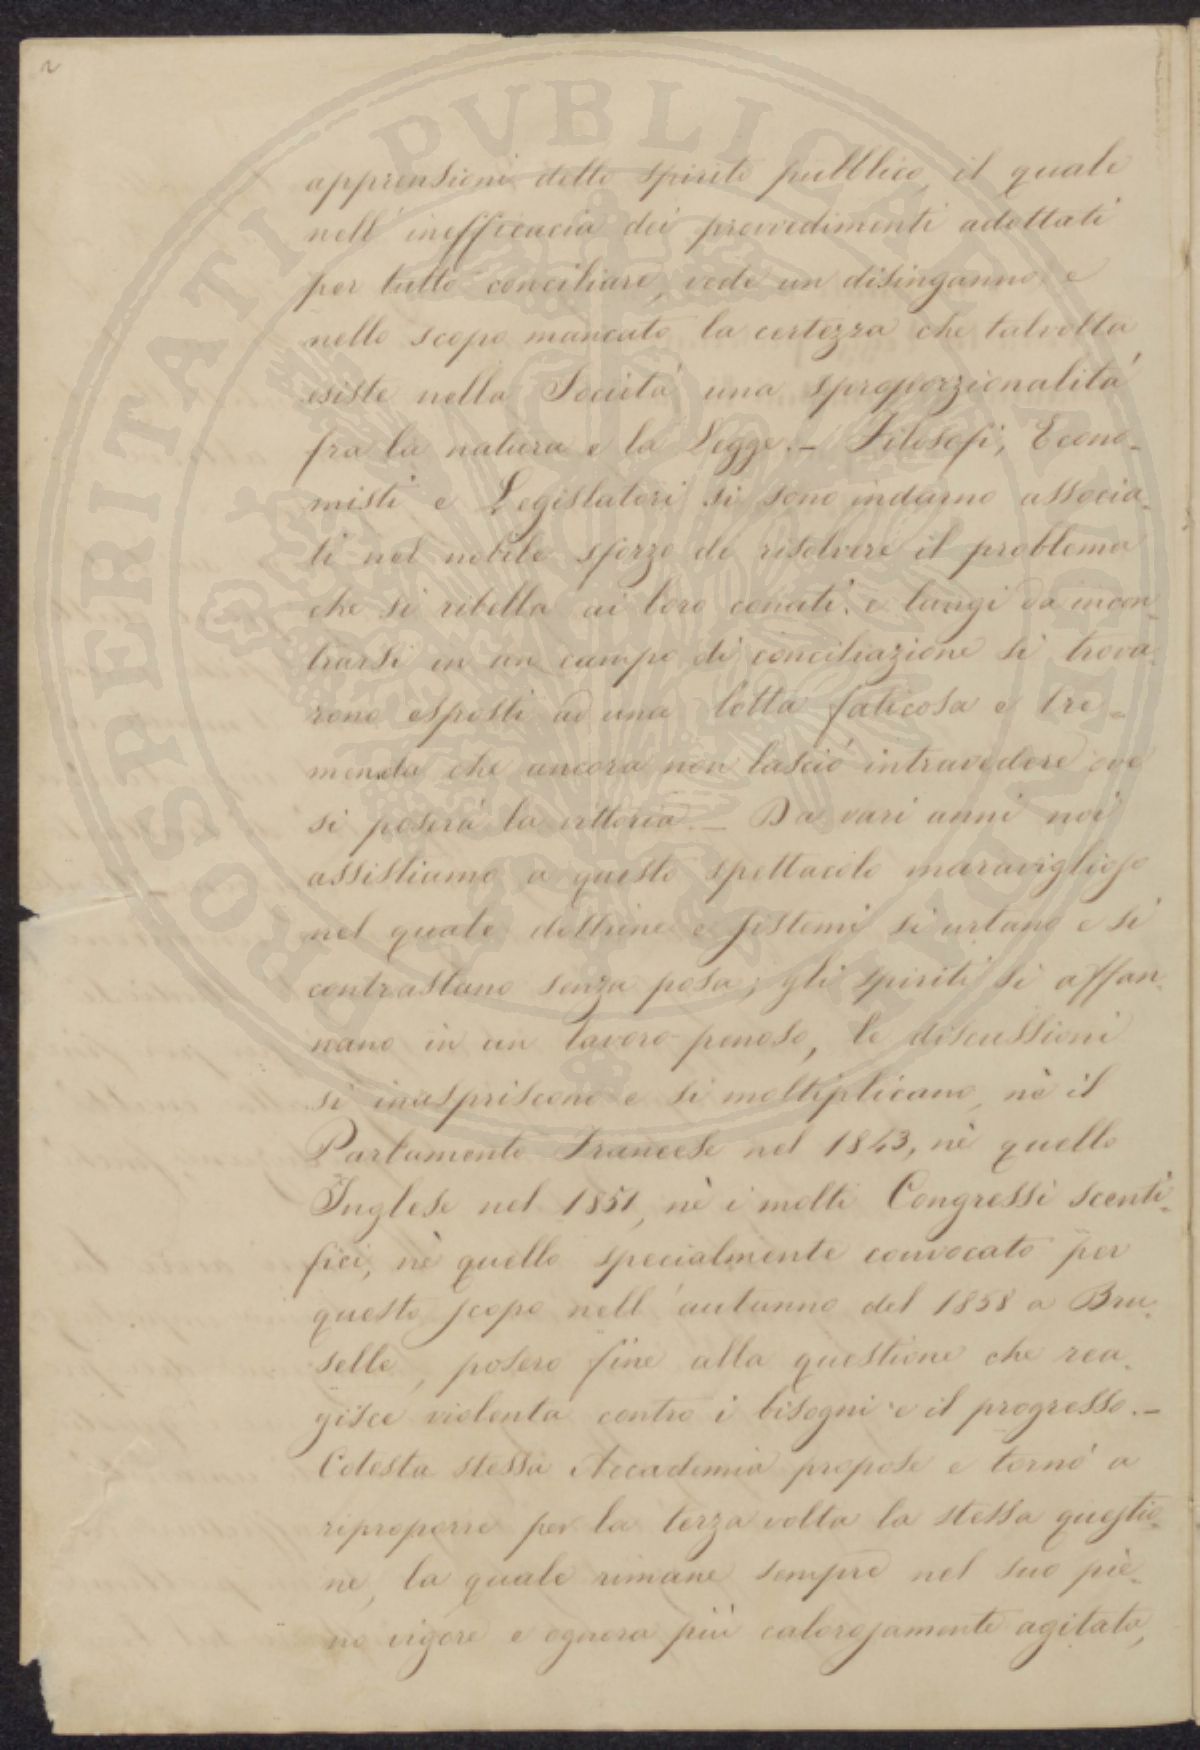 2
apprensioni dello spirito pubblico, il quale
nell'inefficacia dei provvedimenti adottati
per tutto conciliare, vede un disinganno, e
nello scopo mancato la certezza che talvolta
esiste nella Società una sproporzionalità
fra la natura e la Legge. – Filosofi, Econo-
misti e Legislatori si sono indarno associa-
ti nel nobile sforzo di risolvere il problema
che si ribella ai loro conati; e lungi da incon-
trarsi in un campo di conciliazione si trova-
rono esposti ad una lotta faticosa e tre-
menda che ancora non lasciò intravedere ove
si poserà la vittoria. – Da vari anni noi
assistiamo a questo spettacolo maraviglioso
nel quale dottrine e sistemi si urtano e si
contrastano senza posa; gli spiriti si affan-
nano in un lavoro penoso, le discussioni
si inaspriscono e si moltiplicano, nè il
Parlamento Francese nel 1843, nè quello
Inglese nel 1851, nè i molti Congressi scenti-
fici, nè quello specialmente convocato per
questo scopo nell'autunno del 1858 a Bru-
selle, posero fine alla questione che rea-
gisce violenta contro i bisogni e il progresso. –
Cotesta stessa Accademia propose e tornò a
riproporre per la terza volta la stessa questio-
ne, la quale rimane sempre nel suo pie-
no vigore e ognora più calorosamente agitata,
PROSPERITATI PUBLICAE AUGENDAE